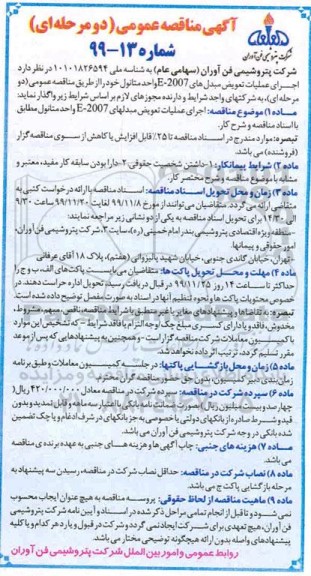 آگهی مناقصه عمومی (دو مرحله ای)
شماره ۱۳-۹۹
شرکت پتروشیمی فن آوران
شرکت پتروشیمی فن آوران (سهامی عام) به شناسه ملی ۱۰۱۰۱۸۲۶۵۹۴ در نظر دارد
اجرای عملیات تعویض مبدل های E-2007 واحد متانول خود را از طریق مناقصه عمومی (دو
مرحله ای)، به شرکتهای واجد شرایط و دارنده مجوزهای لازم بر اساس شرایط زیر واگذار نماید:
ماده ۱) موضوع مناقصه: اجرای عملیات تعویض مبدلهای E-2007 واحد متانول مطابق
با اسناد مناقصه و شرح کار.
تبصره: موارد مندرج در اسناد مناقصه تا ۲۵٪ قابل افزایش یا کاهش از سوی مناقصه گزار
(فروشنده) می باشد.
ماده ۲) شرایط پیمانکار: ۱-داشتن شخصیت حقوقی ۲-دارا بودن سابقه کار مفید، معتبر و
مشابه با موضوع مناقصه و شرح مختصر کار.
ماده ۳) زمان و محل تحویل اسناد مناقصه: اسناد مناقصه با ارائه درخواست کتبی به
متقاضی ارائه می گردد. متقاضیان می توانند از مورخ ۹۹/۱۱/۸ لغایت ۹۹/۱۱/۲۰ ساعت ۹/۳۰
الی ۱۴/۳۰ برای تحویل اسناد مناقصه به یکی از دو نشانی زیر مراجعه نمایند:
-منطقه ویژه اقتصادی پتروشیمی بندر امام خمینی (ره)، سایت ۳، شرکت پتروشیمی فن آوران،
امور حقوقی و پیمانها.
-تهران، خیابان گاندی جنوبی، خیابان شهید پالیزوانی (هفتم)، پلاک ۱۸ آقای عرفانی
ماده ۴) مهلت و محل تحویل پاکت ها: متقاضیان می بایست پاکت های الف، ب و ج را
حداکثر تا ساعت ۱۴ روز ۹۹/۱۱/۲۵ در قبال دریافت رسید، تحویل اداره حراست دهند. در
خصوص محتویات پاکت ها و نحوه تنظیم آنها در اسناد به صورت مفصل توضیح داده شده است.
تبصره: به تقاضاها و پیشنهادهای مغایر یا غیر منطبق با شرایط مناقصه، ناقص، مبهم، مشروط،
مخدوش، فاقد یا دارای کسری مبلغ چک وجه التزام یا فاقد شرایط – که تشخیص این موارد
با کمیسیون معاملات شرکت مناقصه گزار است – و همچنین به پیشنهادهایی که پس از موعد
مقرر تسلیم گردد، ترتیب اثر داده نخواهد شد.
ماده ۵) زمان و محل بازگشایی پاکتها: در جلسه کمیسیون معاملات و طبق برنامه
زمان بندی دبیر کمیسیون، بدون حق حضور مناقصه گران محترم.
ماده ۶) سپرده شرکت در مناقصه: سپرده شرکت در مناقصه معادل ۴۲۰/۰۰۰/۰۰۰ ریال
چهارصد و بیست میلیون ریال به صورت ضمانت نامه بانکی با اعتبار سه ماهه و قابل تمدید و بدون
قید و شرط صادره از بانکهای دولتی یا خصوصی به جز بانکهای در شرف ادغام و یا چک تضمین
شده بانکی در وجه شرکت پتروشیمی فن آوران می باشد.
ماده ۷) هزینه های جنبی: چاپ آگهی ها و هزینه های جنبی به عهده برنده ی مناقصه
می باشد.
ماده ۸) نصاب شرکت در مناقصه: حداقل نصاب شرکت در مناقصه، رسیدن سه پیشنهاد به
مرحله بازگشایی پاکت ج می باشد.
ماده ۹) ماهیت مناقصه از لحاظ حقوقی: پروسه مناقصه به هیچ عنوان ایجاب محسوب
نمی شود و تا قبل از انجام تمامی مراحل ذکر شده در اسناد و آیین نامه شرکت پتروشیمی
فن آوران، هیچ تعهدی برای شرکت ایجاد نمی گردد و شرکت در قبول و یا رد هر کدام و یا کلیه
پیشنهادهای واصله بدون ارائه هیچگونه توضیحی مختار می باشد.
روابط عمومی و امور بین الملل شرکت پتروشیمی فن آوران